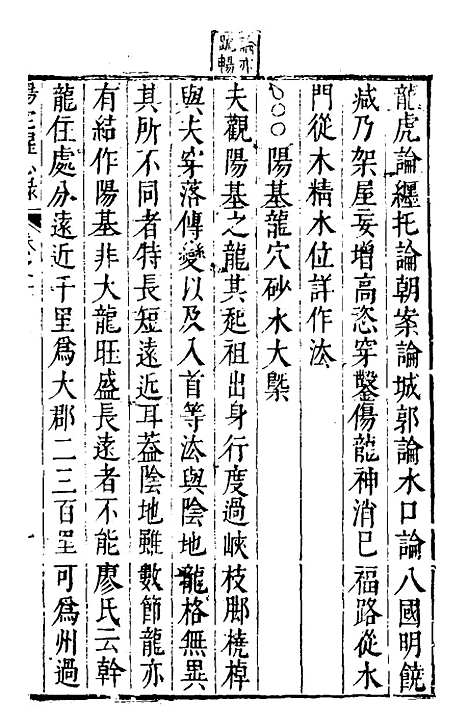 論亦
疏暢
龍虎論纏托論朝案論城郭論水口論八國明饒
减乃架屋妄增高恣穿鑿傷龍神消巳福路從水
門從水精水位詳作法
○○○陽基龍穴砂水大槩
夫觀陽基之龍其起祖出身行度過峽枝脚橈棹
與夫穿落傳變以及入首等法與陰地龍格無異
其所不同者特長短遠近耳葢陰地雖數節龍亦
有結作陽基非大龍旺盛長遠者不能廖氏云幹
龍住處分遠近千里爲大郡二三百里可爲州過